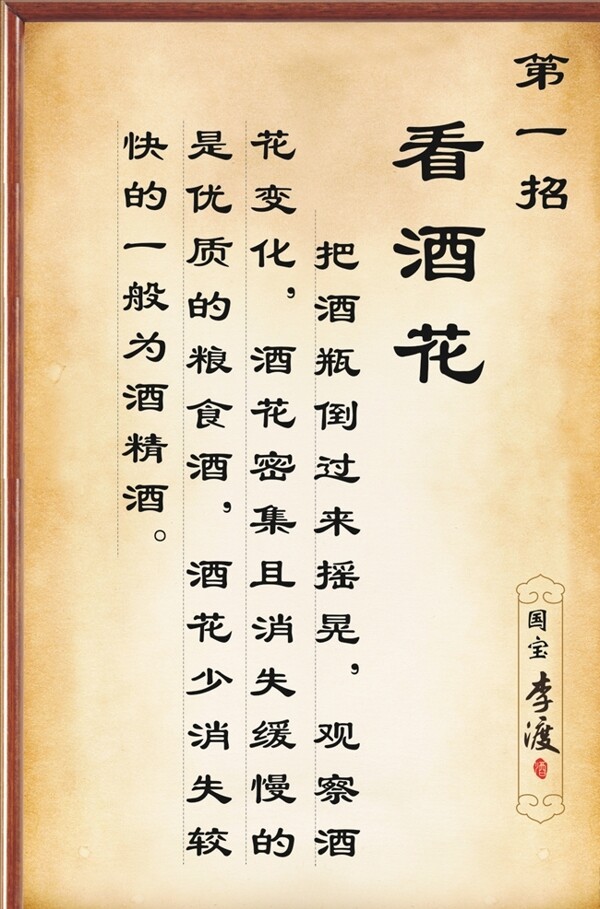 第一招
看酒花
把酒瓶倒过来摇晃，观察酒
花变化，酒花密集且消失缓慢的
是优质的粮食酒，酒花少消失较
快的一般为酒精酒。
国宝李渡
酒